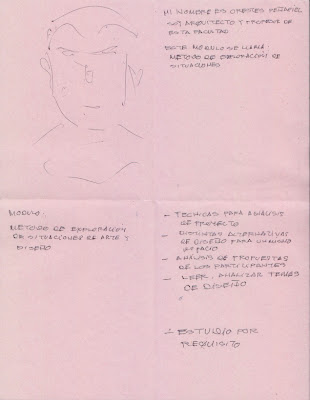 MI NOMBRE ES ORESTES PEÑAFIEL
SOY ARQUITECTO Y PROFESOR DE
ESTA FACULTAD
ESTE MODULO SE LLAMA:
METODO DE EXPLORACION DE
SITUACIONES
MODULO:
METODO DE EXPLORACION
DE SITUACIONES DE ARTE Y
DISEÑO
- TECNICAS PARA ANALISIS
DE PROYECTO
- DISTINTAS ALTERNATIVAS
DE DISEÑO PARA UN MISMO
ESPACIO
- ANALISIS DE PROPUESTAS
DE LOS PARTICIPANTES
- LEER, ANALIZAR TEMAS
DE DISEÑO
ESTUDIO POR